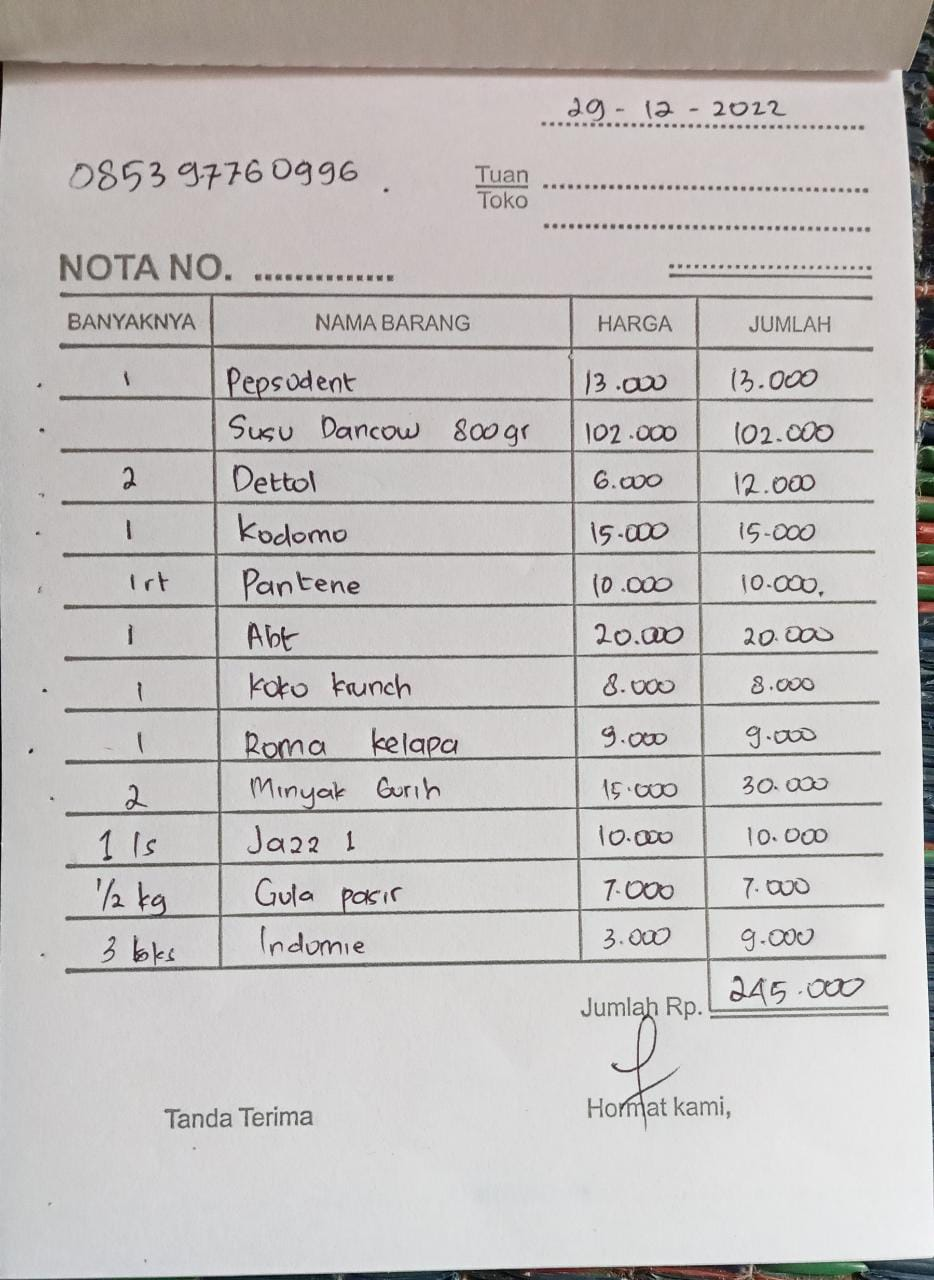 29 - 12 - 2022
085397760996.
Tuan
Toko
NOTA NO.
BANYAKNYA NAMA BARANG HARGA JUMLAH
1 Pepsodent 13.000 13.000
Susu Dancow 800gr 102.000 102.000
2 Dettol 6.000 12.000
1 Kodomo 15.000 15.000
1 rt Pantene 10.000 10.000,
1 Abt 20.000 20.000
1 Koko krunch 8.000 8.000
1 Roma kelapa 9.000 9.000
2 Minyak Gurih 15.000 30.000
1 ls Jazz 1 10.000 10.000
1/2 kg Gula pasir 7.000 7.000
3 Indomie 3.000 9.000
Jumlah Rp. 245.000
Tanda Terima Hormat kami,